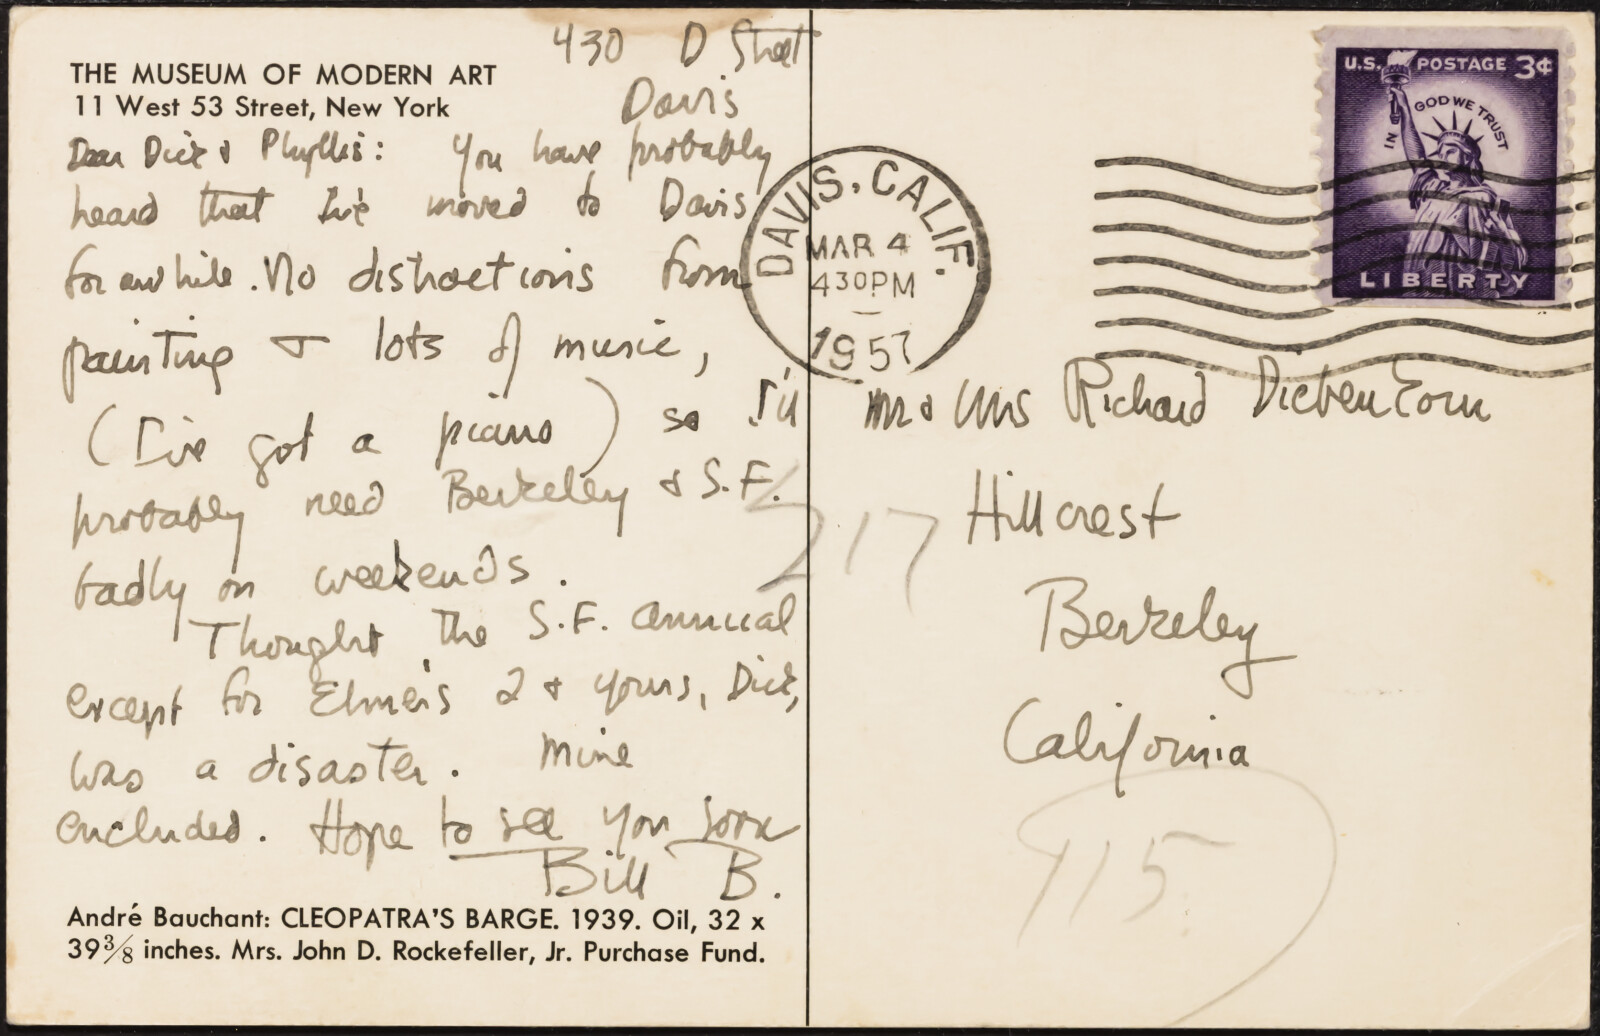 430 D Street
Davis
THE MUSEUM OF MODERN ART
11 West 53 Street, New York
Dear Dick & Phyllis: You have probably
heard that I've moved to Davis
for awhile. No distractions from
painting & lots of music,
(I've got a piano) so I'll
probably need Berkeley & S.F.
badly on weekends.
Thought the S.F. annual
except for Elmer's 2 & yours, Dick,
was a disaster. Mine
included. Hope to see you soon
Bill B.
André Bauchant: CLEOPATRA'S BARGE. 1939. Oil, 32 x
39⅜ inches. Mrs. John D. Rockefeller, Jr. Purchase Fund.
DAVIS, CALIF.
MAR 4
430PM
1957
U.S. POSTAGE 3¢
IN GOD WE TRUST
LIBERTY
Mr & Mrs Richard Diebenkorn
217 Hillcrest
Berkeley
California
915